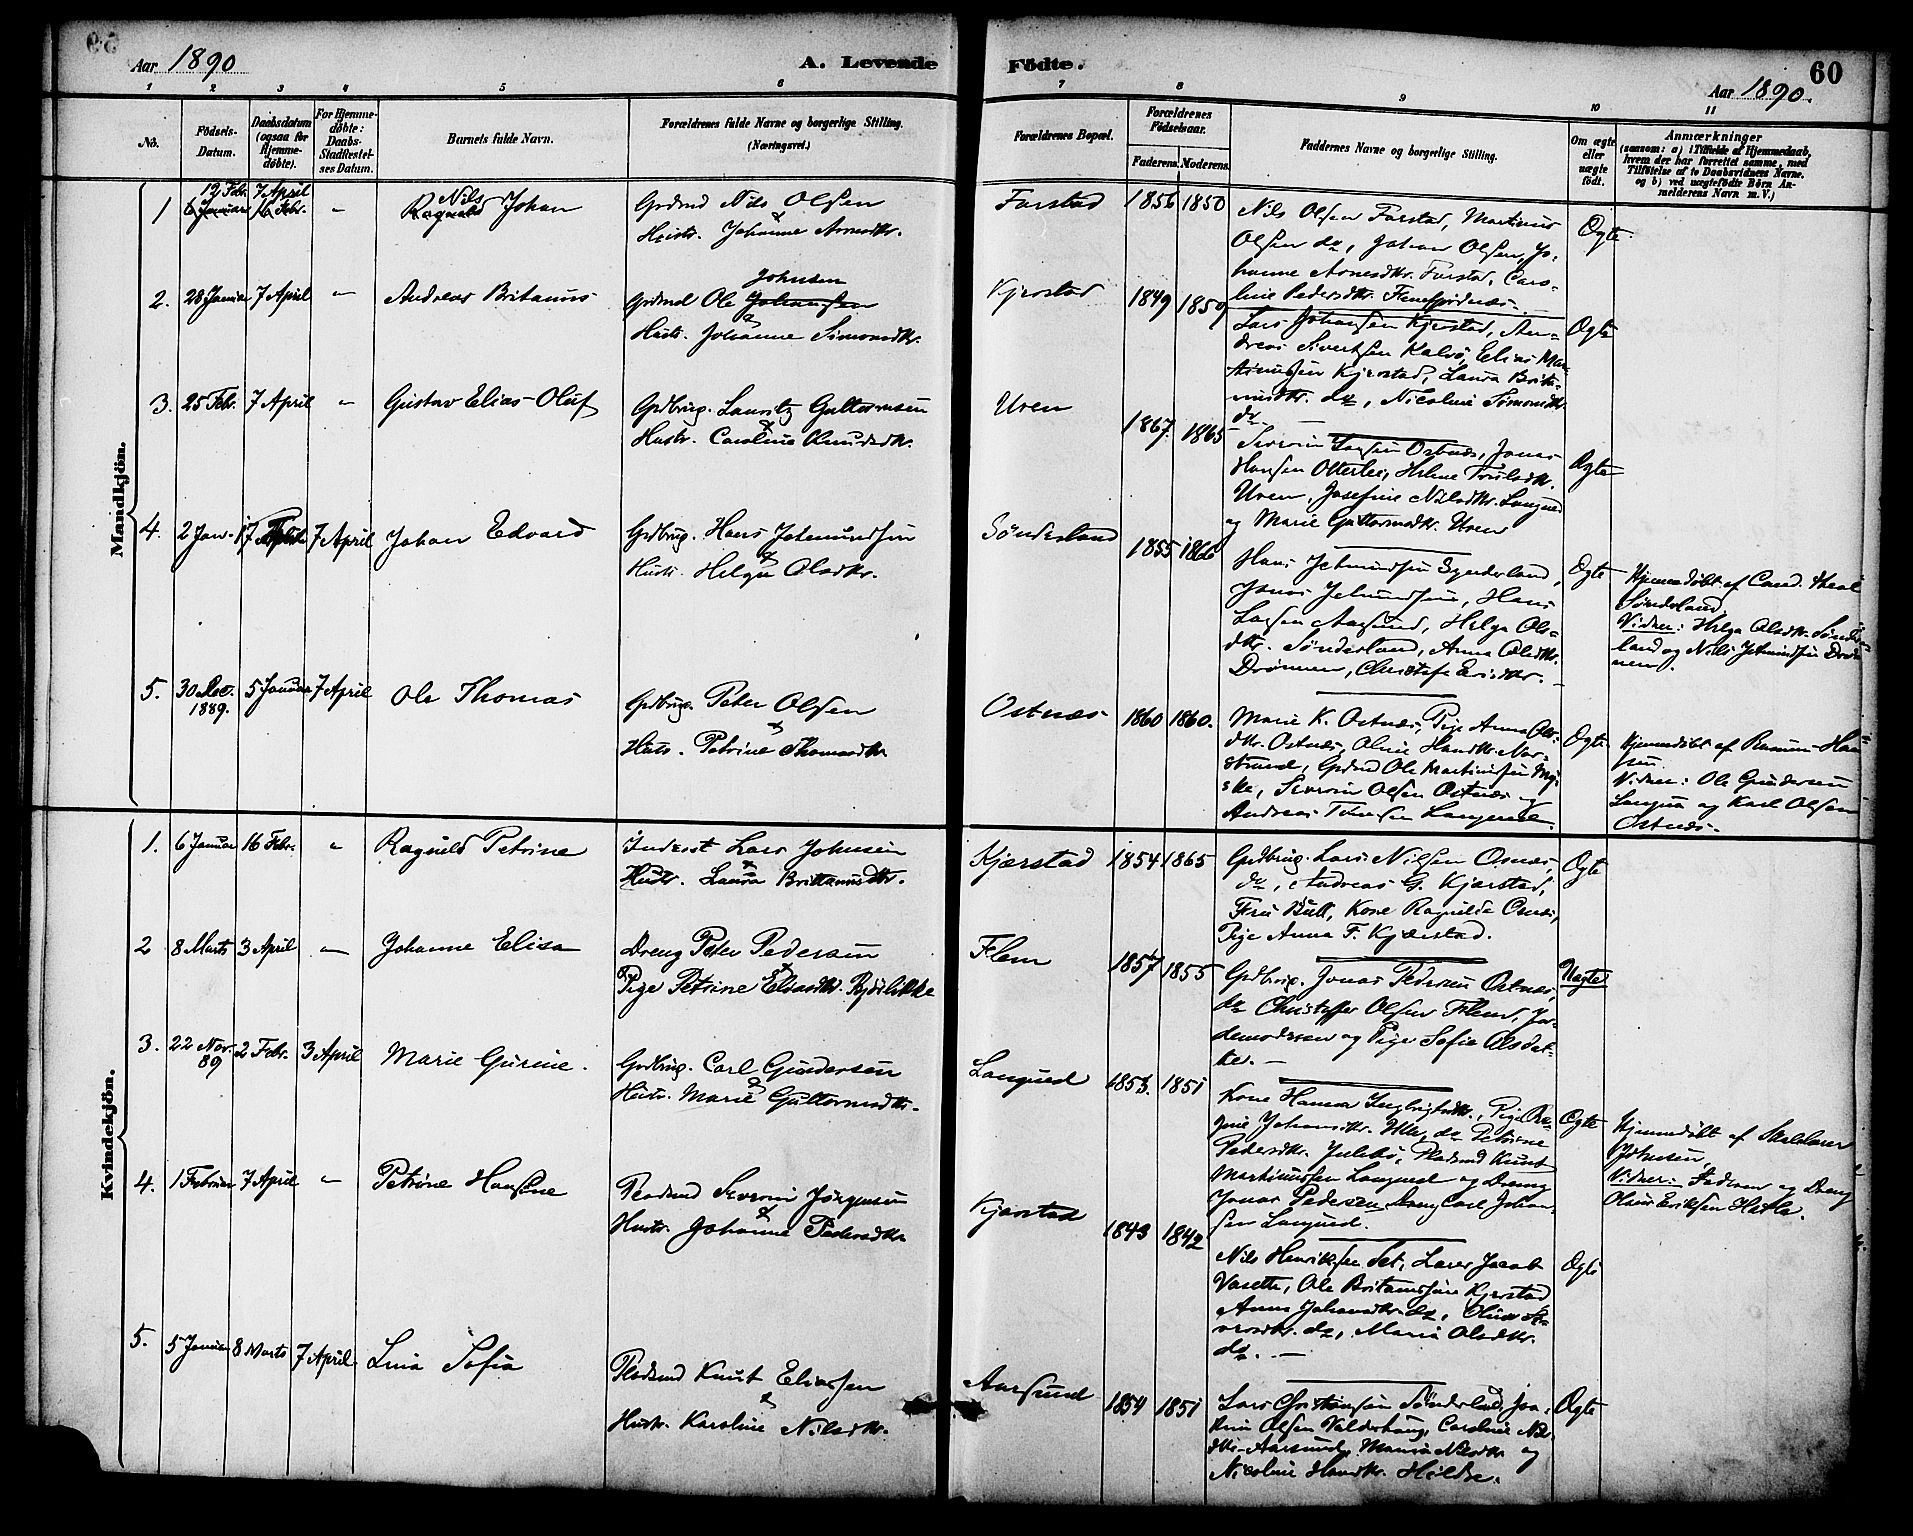 Aar 1890 A. Levende Födte. Aar 1890. 60
1 2 3 4 5 6 7 8 9 10 11
No. Födsels-Datum. Daabsdatum (ogsaa for Hjemme-döbte). For Hjemme-döbte: Daabs-Stadfæstel-ses Datum. Barnets fulde Navn. Forældrenes fulde Navne og borgerlige Stilling. (Næringsvei.) Forældrenes Bopæl. Forældrenes Födselsaar. Faderens. Moderens. Faddernes Navne og borgerlige Stilling. Om ægte eller uægte födt. Anmærkninger (saasom: a) i Tilfælde af Hjemmedaab, hvem der har forrettet samme, med Tilföielse af to Daabsvidners Navne. og b) ved uægtefödte Börn An-melderens Navn m. V.)
Mandkjön.
12 Febr. 7 April
1 6 Januar 16 Febr. " Ragnald Nils Johan
Grdmd Nils Olsen
&
Hustr. Johanne Arnesdtr.
Farstad 1856 1850
Nils Olsen Farstad, Martinus
Olsen do, Johan Olsen, Jo-
hanne Arnesdtr. Farstad, Caro-
line Pedersdtr.
Ægte
2. 28 Januar 7 April " Andreas Britanus
Johnsen
Grdmd Ole Johansen
&
Hustr. Johanne Simonsdtr.
Kjerstad 1849 1859
Lars Johansen Kjerstad, An-
dreas Sivertsen Kalvø, Elias
Kjerstad, Laura Brita-
nusdtr. do, Nicoline Simonsdtr.
do
Ægte
3. 25 Febr. 7 April " Gustav Elias Oluf
Grdbrug. Lauritz Guttormsen
&
Hustr. Caroline Knudsdtr.
Uren 1867. 1865
Severin Larsen Ostnæs, Jonas
Hansen Otterlei, Helene Trulsdtr.
Uren, Josefine Nilsdtr.
og Marie Guttormsdtr. Uren
Ægte
4. 2 Jan. 7 April Johan Edvard
Grdbrug. Hans Jetmundsen
&
Hustr. Helga Olsdtr.
Sønderland 1855 1866
Hans Jetmundsen Synderland,
Jonas Jetmundsen, Hans
Larsen Aarsund, Helga Ols-
dtr. Sønderland, Anna Olsdtr.
Drønnen,
Ægte
Hjemmedøbt af Cand. theol
Sønderland.
Vidner: Helga Olsdtr. Sønder-
land og Nils Jetmundsen Drøn-
nen.
5. 30 Dec. 1889. 5 Januar 7 April Ole Thomas
Grdbrug. Peter Olsen
&
Hustr. Petrine Thomasdtr.
Ostnæs 1860 1860.
Marie K. Ostnæs, Pige Anna Ols-
dtr. Ostnæs, Oline Hansdtr. Nor-
strand, Grdmd Ole Martinussen
Severin Olsen Ostnæs og
Andreas
Ægte
Hjemmedøbt af Rasmus Han-
sen.
Vidner: Ole Gundersen
og Karl Olsen
Ostnæs.
Kvindekjön.
1. 6 Januar 16 Febr. " Ragnild Petrine
Inderst Lars Johnsen
&
Hustr. Laura Brittanusdtr.
Kjærstad 1854 1865
Grdbrug. Lars Nilsen Osnæs,
do, Andreas G. Kjærstad,
Fru Bull, Kone Ragnilda Osnæs,
Pige Anna F. Kjærstad.
Ægte
2 8 Marts 3 April " Johanne Elisa
Dreng Peter Pedersen
&
Pige Petrine Eliasdtr.
Flem 1857 1855
Grdbrug. Jonas Pedersen Ostnæs,
do Christoffer Olsen Flem, Jor-
demoderen og Pige Sofie Olsdat-
ter.
Uægte
3. 22 Nov. 89 2 Febr. 3 April Marie Gurine.
Grdbrug. Carl Gundersen
&
Hustr. Marie Guttormsdtr.
1853. 1851
Kone Hanna Ingbrigtsdtr., Pige
Johansdtr. do Petrine
Pedersdtr. Julebø, Pladsmd Knut
Martinussen og Dreng
Jonas Pedersen, Dreng Carl Johan-
sen
Ægte
Hjemmedøbt af Skolelærer
Johnsen.
Vidner: Faderen og Dreng
Eriksen
4. 1 Februar 7 April " Petrine Hansine
Pladsmd Severin Jørgensen
&
Hustr. Johanne Pedersdtr.
Kjerstad 1843 1842
Nils Henriksen Set, Lærer Jacob
Ole Britanussen Kjerstad
Anna Johansdtr. do,
do, Maria Olsdtr.
do.
Ægte
5. 5 Januar 8 Marts 7 April Lina Sofia
Pladsmd Knut Eliassen
&
Hustr. Karoline Nilsdtr.
Aarsund 1854 1851
Lars Christiansen Sønderland, Joa-
kim Olsen Valderhaug, Caroline Nils-
dtr. Aarsund, Maria Nilsdtr. og
Nicoline Hansdtr. Hildre.
Ægte